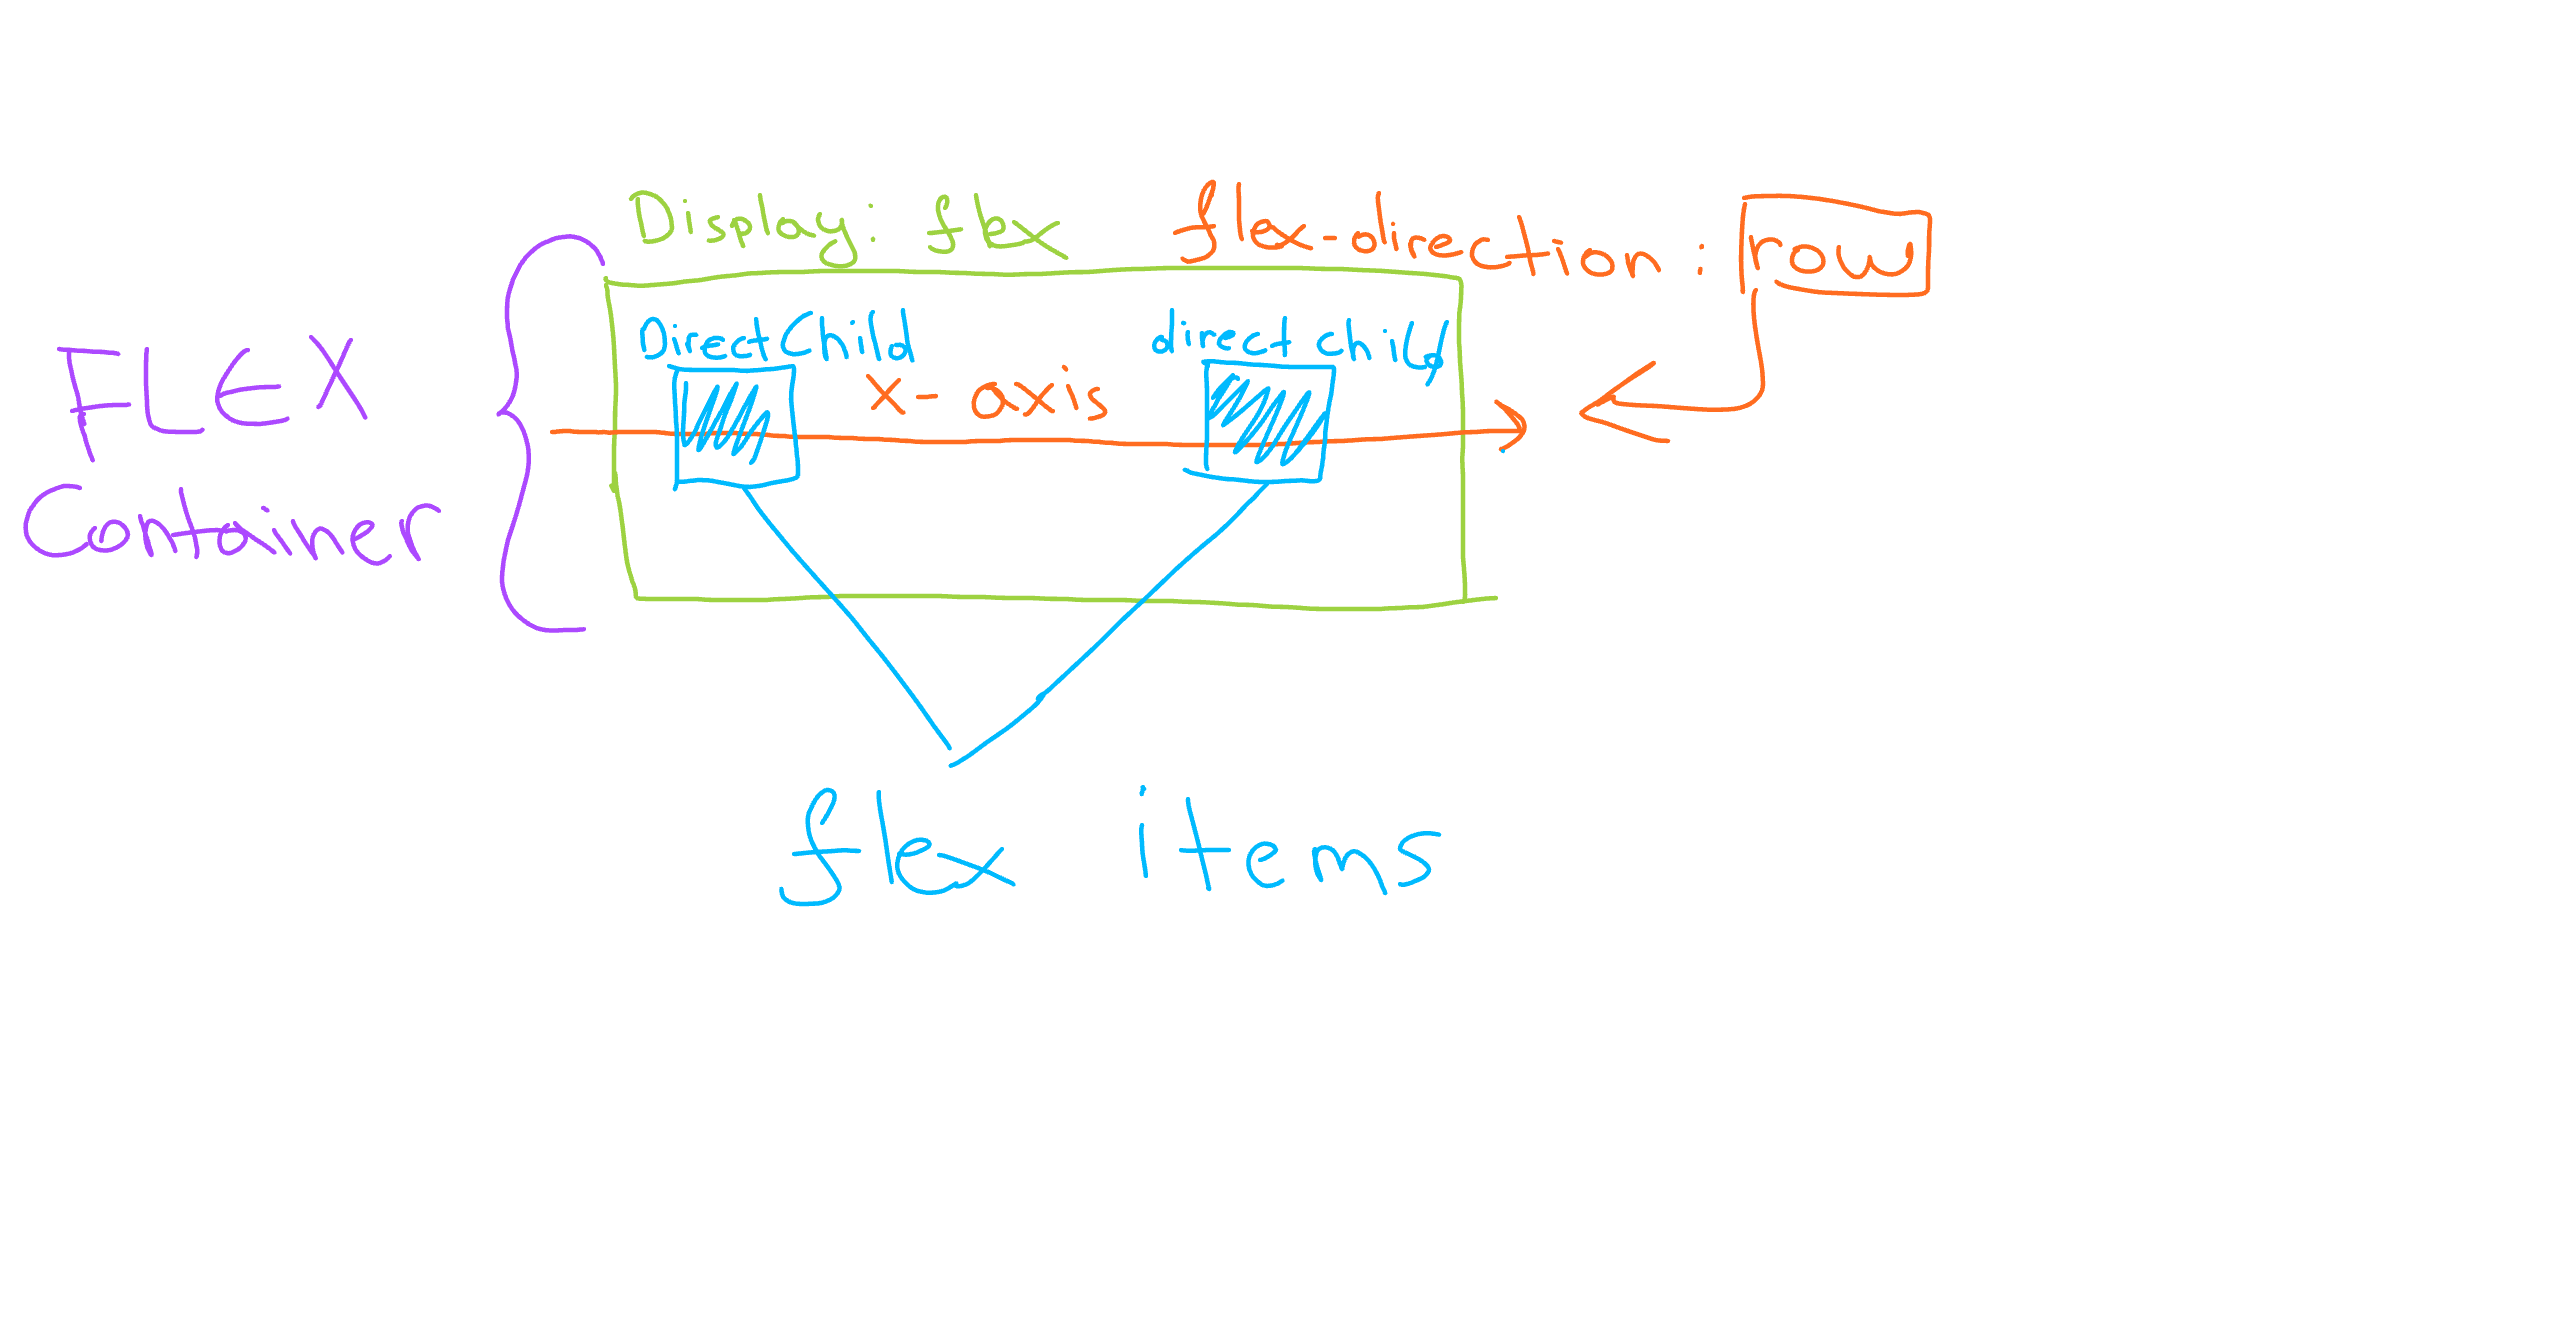 Display: flex
flex-direction: row
FLEX
Container
Direct Child
direct child
x-axis
flex items